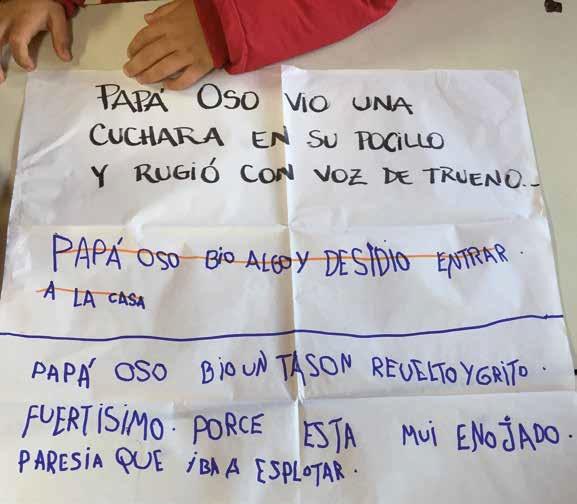 PAPÁ OSO VIO UNA
CUCHARA EN SU POCILLO
Y RUGIÓ CON VOZ DE TRUENO...
PAPÁ OSO BIO ALGO Y DESIDIO ENTRAR.
A LA CASA
PAPÁ OSO BIO UN TASON REVUELTO Y GRITO.
FUERTÍSIMO. PORCE ESTA MUI ENOJADO.
PARESIA QUE IBA A ESPLOTAR.